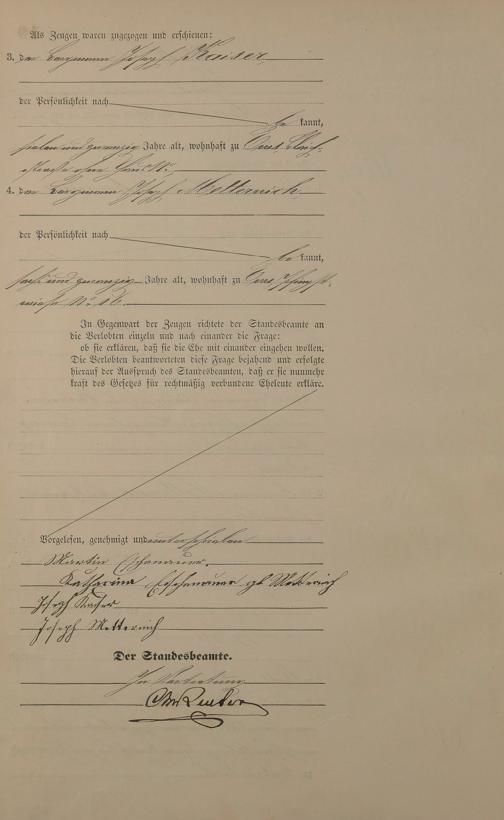 Als Zeugen waren zugezogen und erschienen:
3. der Bergmann Joseph Kaiser,
der Persönlichkeit nach
be kannt,
sieben und zwanzig Jahre alt, wohnhaft zu
4. der Bergmann Joseph Metternich
der Persönlichkeit nach
be kannt,
sechs und zwanzig Jahre alt, wohnhaft zu
wiese No 16.
In Gegenwart der Zeugen richtete der Standesbeamte an
die Verlobten einzeln und nach einander die Frage:
ob sie erklären, daß sie die Ehe mit einander eingehen wollen.
Die Verlobten beantworteten diese Frage bejahend und erfolgte
hierauf der Ausspruch des Standesbeamten, daß er sie nunmehr
kraft des Gesetzes für rechtmäßig verbundene Eheleute erkläre.
Vorgelesen, genehmigt und unterschrieben
Martin Eschenauer.
Katharina Eschenauer gb Metternich
Joseph Kaiser
Joseph Metternich
Der Standesbeamte.
In Vertretung